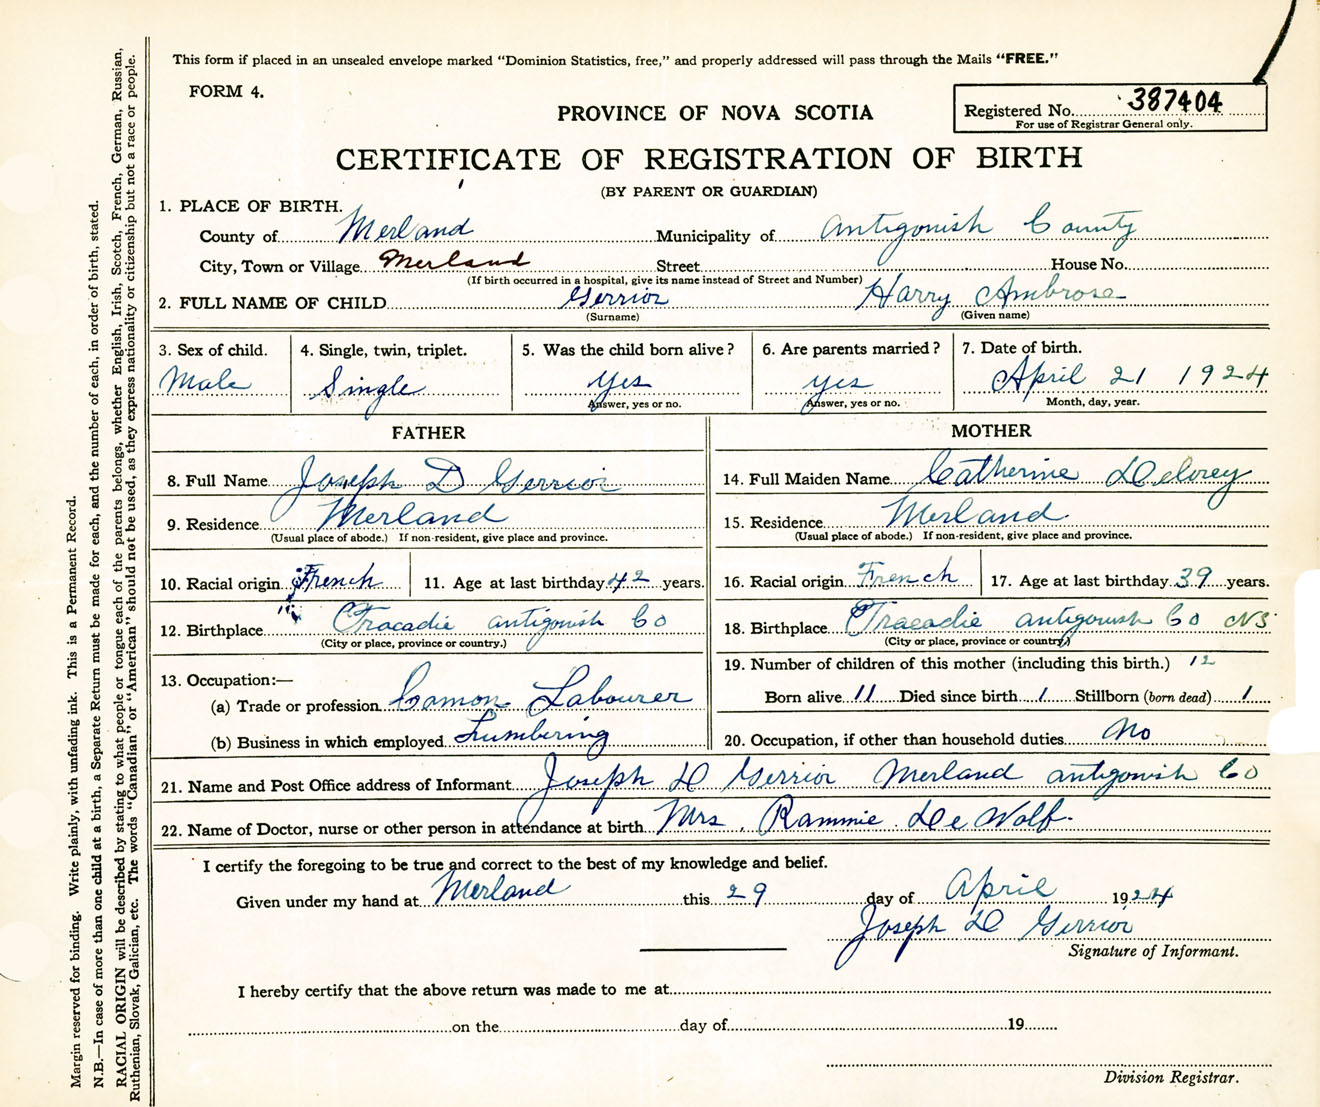 This form if placed in an unsealed envelope marked "Dominion Statistics, free," and properly addressed will pass through the Mails "FREE."
FORM 4.
PROVINCE OF NOVA SCOTIA
Registered No. 387404
For use of Registrar General only.
CERTIFICATE OF REGISTRATION OF BIRTH
(BY PARENT OR GUARDIAN)
1. PLACE OF BIRTH.
County of Merland Municipality of Antigonish County
City, Town or Village Merland Street House No.
(If birth occurred in a hospital, give its name instead of Street and Number)
2. FULL NAME OF CHILD Gerrior Harry Ambrose
(Surname) (Given name)
3. Sex of child. 4. Single, twin, triplet. 5. Was the child born alive? 6. Are parents married? 7. Date of birth.
Male Single Yes Yes April 21 1924
Answer, yes or no. Answer, yes or no. Month, day, year.
FATHER MOTHER
8. Full Name Joseph D Gerrior 14. Full Maiden Name Catherine Delorey
9. Residence Merland 15. Residence Merland
(Usual place of abode.) If non-resident, give place and province. (Usual place of abode.) If non-resident, give place and province.
10. Racial origin French 11. Age at last birthday 42 years. 16. Racial origin French 17. Age at last birthday 39 years.
12. Birthplace Tracadie antigonish Co 18. Birthplace Tracadie antigonish Co NS
(City or place, province or country.) (City or place, province or country.)
13. Occupation:— 19. Number of children of this mother (including this birth.) 12
(a) Trade or profession Comon Labourer Born alive 11 Died since birth 1 Stillborn (born dead) 1
(b) Business in which employed Lumbering 20. Occupation, if other than household duties No
21. Name and Post Office address of Informant Joseph D Gerrior Merland antigonish Co
22. Name of Doctor, nurse or other person in attendance at birth Mrs. Rammie De Wolf.
I certify the foregoing to be true and correct to the best of my knowledge and belief.
Given under my hand at Merland this 29 day of April 1924
Joseph D Gerrior
Signature of Informant.
I hereby certify that the above return was made to me at
on the day of 19
Division Registrar.
Margin reserved for binding. Write plainly, with unfading ink. This is a Permanent Record.
N.B.—In case of more than one child at a birth, a Separate Return must be made for each, and the number of each, in order of birth, stated.
RACIAL ORIGIN will be described by stating to what people or tongue each of the parents belongs, whether English, Irish, Scotch, French, German, Russian,
Ruthenian, Slovak, Galician, etc. The words "Canadian" or "American" should not be used, as they express nationality or citizenship but not a race or people.